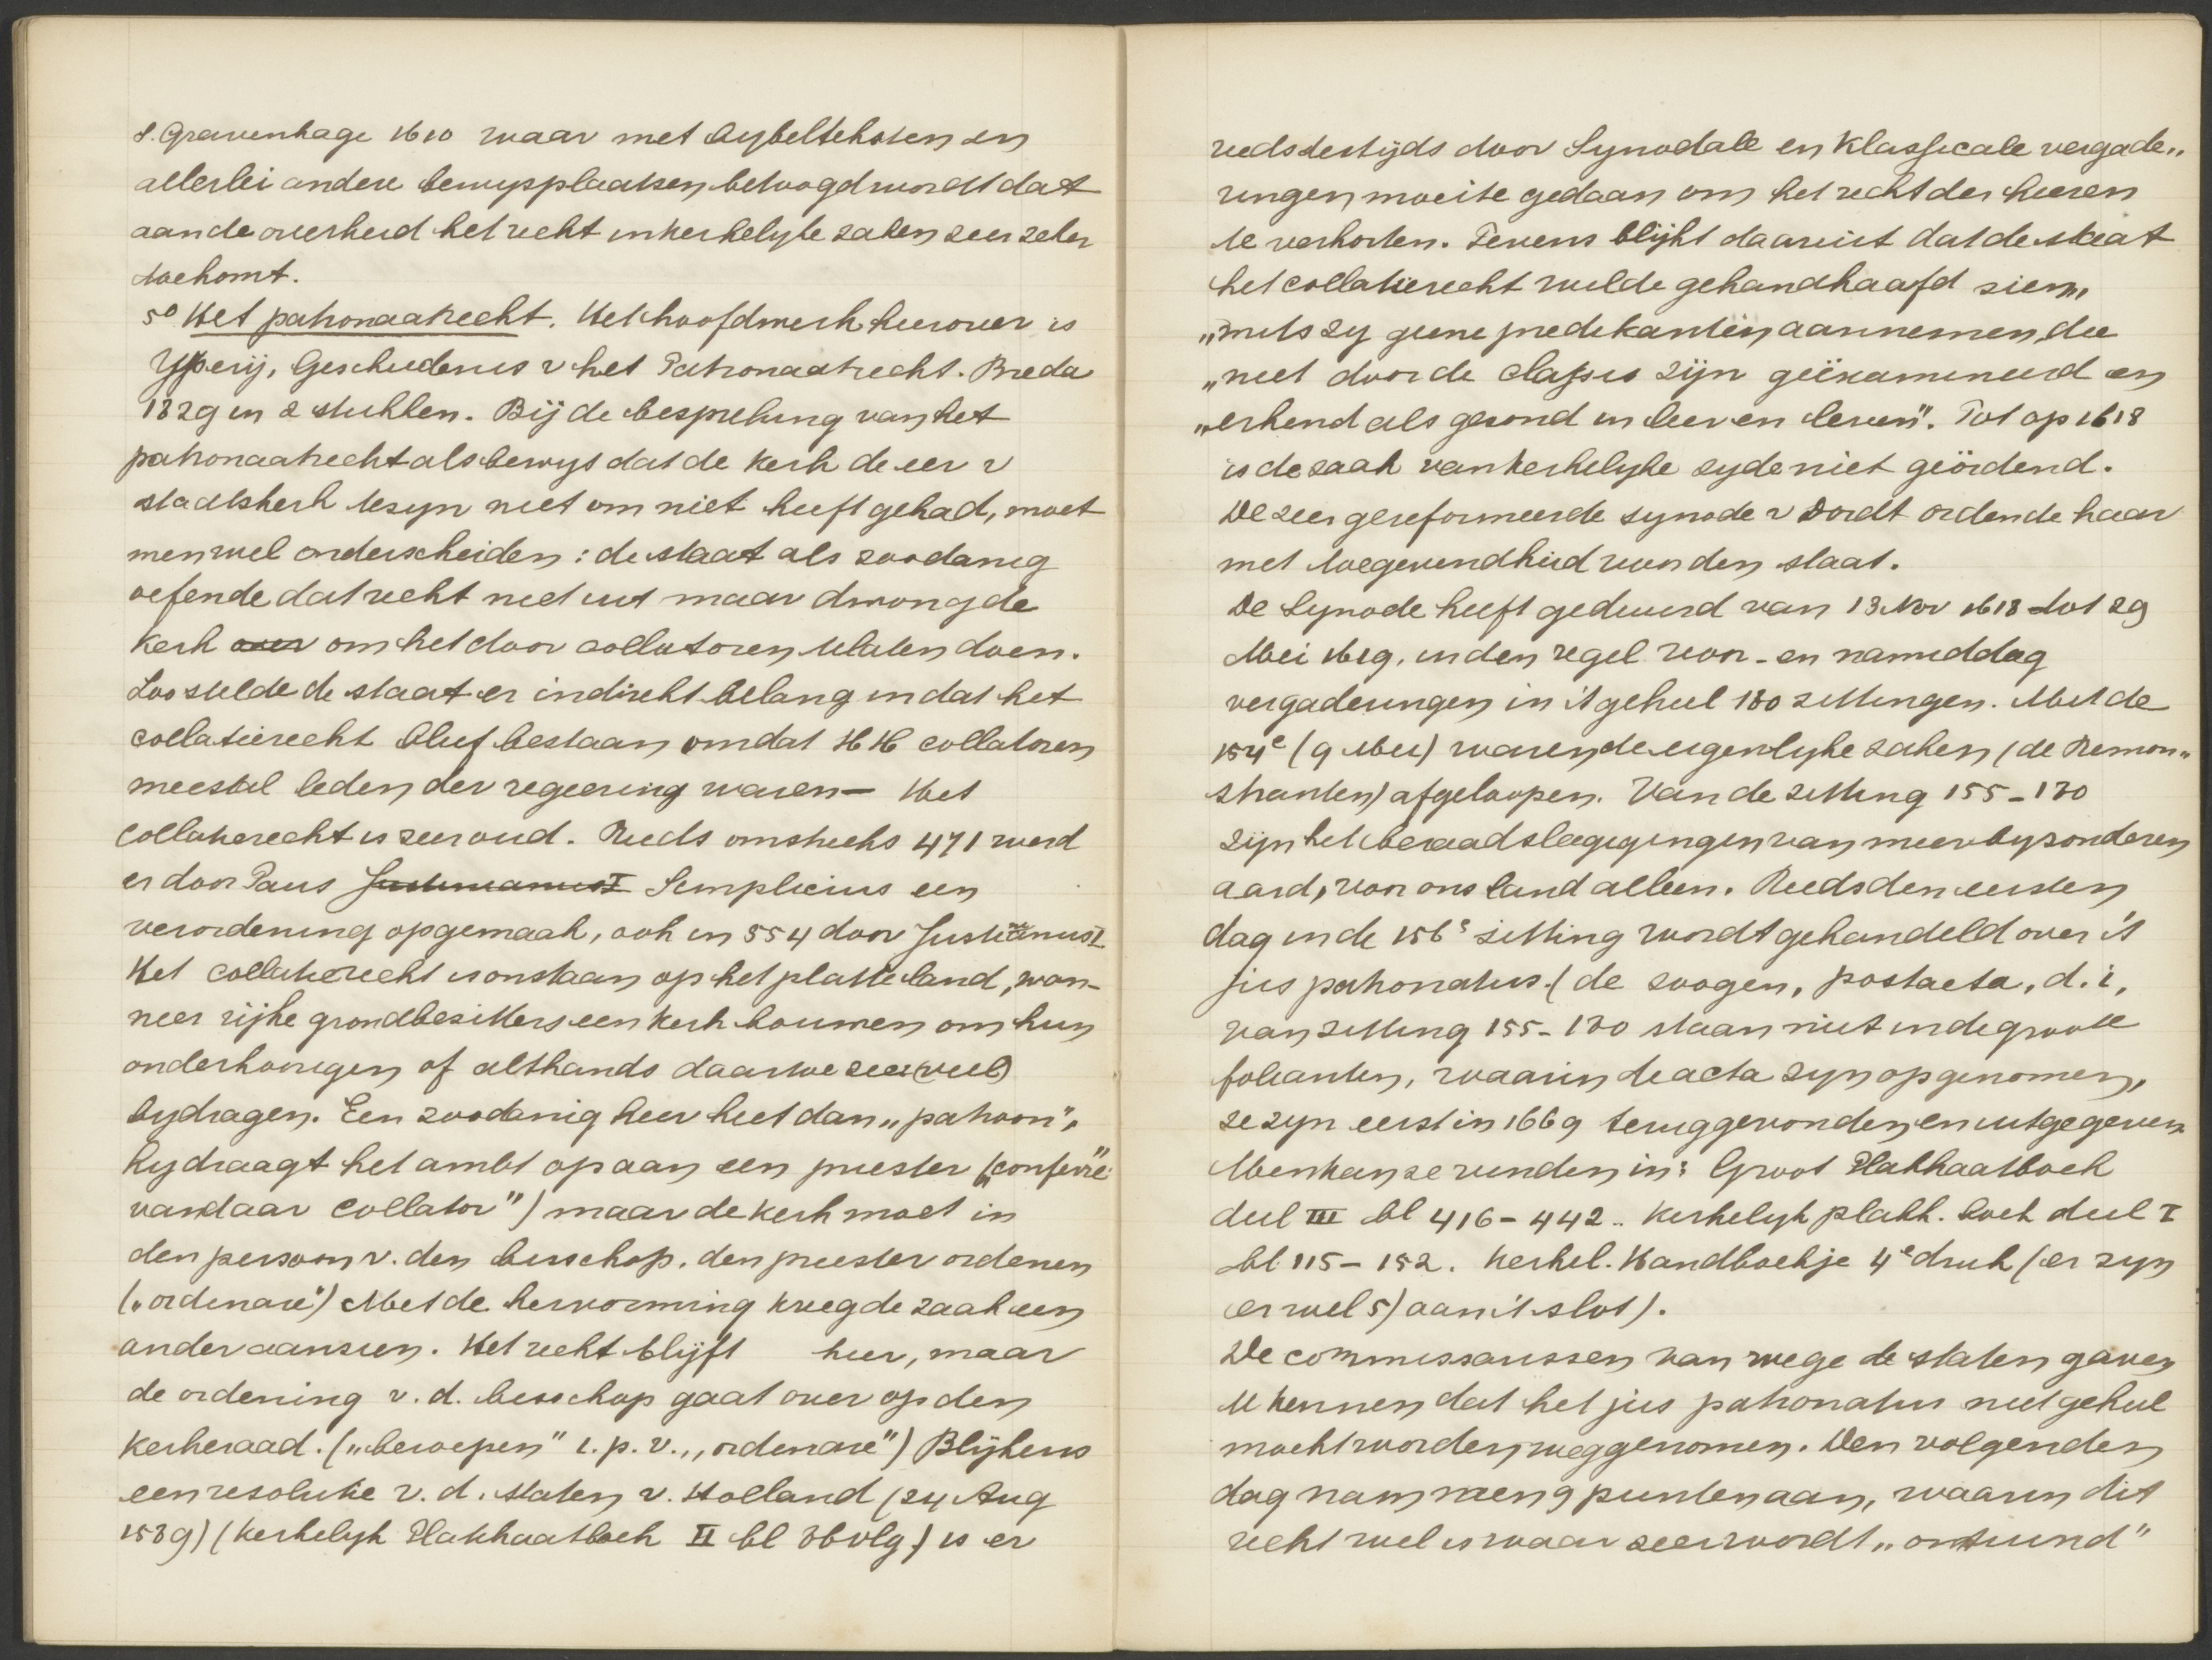 s. Gravenhage 1610 waar met bybelteksten en
allerlei andere bewysplaatsen betoogd wordt dat
aan de overheid het recht in kerkelyke zaken zeer zeker
toekomt.
5° Het patronaatrecht. Het hoofdwerk hierover is
Ypeij, Geschiedenis v het Patronaatrecht. Breda
1829 in 2 stukken. Bij de bespreking van het
patronaatrecht als bewys dat de kerk de eer v
staatskerk te zyn niet om niet heeft gehad, moet
men wel onderscheiden: de staat als zoodanig
oefende dat recht niet uit maar dwong de
kerk over om het door collatoren te laten doen.
Zoo stelde de staat er indirekt belang in dat het
collatierecht bleef bestaan omdat HH collatoren
meestal leden der regeering waren — Het
collatierecht is zeer oud. Reeds omstreeks 471 werd
er door Paus Justinianus I Simplicius een
verordening opgemaak, ook in 554 door Justinianus I.
Het collatierecht is onstaan op het platte land, wan-
neer rijke grondbezitters een kerk bouwen om hun
onderhoorigen of althands daartoe zeer (veel)
bydragen. Een zoodanig heer heet dan „patroon",
hy draagt het ambt op aan een priester („conferre"
vandaar collator") maar de kerk moet in
den persoon v. den bisschop, den priester ordenen
(„ordinare") Met de hervorming kreeg de zaak een
ander aanzien. Het recht blijft hier, maar
de ordening v. d. bisschop gaat over op den
kerkeraad. („beroepen" i. p. v. „ordinare") Blijkens
een resolutie v. d. staten v. Holland (24 Aug
1589) (Kerkelyk Plakkaatboek II bl 36 vlg) is er
reeds destijds door Synodale en Klassicale vergade„
ringen moeite gedaan om het recht der heeren
te verkorten. Tevens blijkt daaruit dat de staat
het collatierecht wilde gehandhaafd zien,
„mits zy geene predikanten aannemen, die
„niet door de classis zijn geëxamineerd en
„erkend als gezond in leer en leven". Tot op 1618
is de zaak van kerkelyke zyde niet geördend.
De zeer gereformeerde synode v Dordt ordende haar
met toegevendheid voor den staat.
De Synode heeft geduurd van 13 Nov 1618 tot 29
Mei 1619, in den regel voor- en namiddag
vergaderingen in 't geheel 180 zittingen. Met de
154e (9 Mei) waren de eigenlyke zaken (de Remon„
stranten) afgeloopen. Van de zitting 155-180
zijn het beraadslagigingen van meer byzonderen
aard, voor ons land alleen. Reeds den eersten
dag in de 156e zitting wordt gehandeld over 't
jus patronatus. (de zoogen, postacta, d. i,
van zitting 155-180 staan niet in de groote
folianten, waarin de acta zyn opgenomen,
ze zyn eerst in 1669 teruggevonden en uitgegeven.
Men kan ze vinden in: Groot Plakkaatboek
deel III bl 416-442.. Kerkelyk plakk. boek deel I
bl 115-152. Kerkel. Handboekje 4e druk (er zyn
er wel 5) aan 't slot).
De commissarissen van wege de staten gaven
te kennen dat het jus patronatus niet geheel
mocht worden weggenomen. Den volgenden
dag nam men 9 punten aan, waarin dit
recht wel is waar zeer wordt „ontsiend"